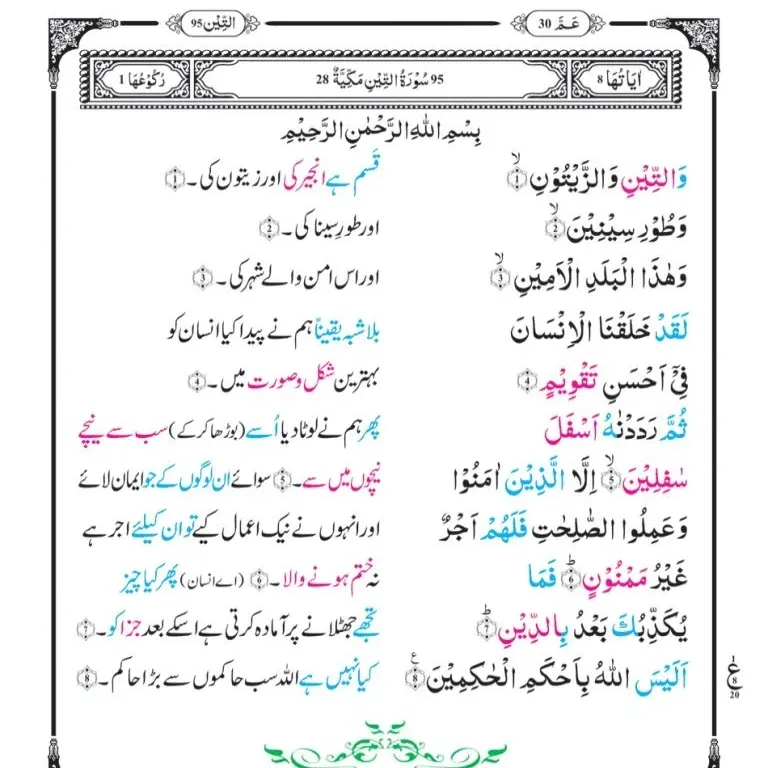 عَمَّ 30
التِّيْن 95
اٰيَاتُهَا 8
95 سُوْرَةُ التِّيْنِ مَكِّيَّةٌ 28
رُكُوْعُهَا 1
بِسْمِ اللهِ الرَّحْمٰنِ الرَّحِيْمِ
وَالتِّيْنِ وَالزَّيْتُوْنِ ۙ 1 قَسم ہے انجیر کی اور زیتون کی۔ 1
وَطُوْرِ سِيْنِيْنَ ۙ 2 اور طورِ سینا کی۔ 2
وَهٰذَا الْبَلَدِ الْاَمِيْنِ ۙ 3 اور اس امن والے شہر کی۔ 3
لَقَدْ خَلَقْنَا الْاِنْسَانَ بلاشبہ یقیناً ہم نے پیدا کیا انسان کو
فِيْٓ اَحْسَنِ تَقْوِيْمٍ 4 بہترین شکل و صورت میں۔ 4
ثُمَّ رَدَدْنٰهُ اَسْفَلَ پھر ہم نے لوٹا دیا اُسے (بوڑھا کر کے) سب سے نیچے
سٰفِلِيْنَ ۙ 5 اِلَّا الَّذِيْنَ اٰمَنُوْا نیچوں میں سے۔ 5 سوائے ان لوگوں کے جو ایمان لائے
وَعَمِلُوا الصّٰلِحٰتِ فَلَهُمْ اَجْرٌ اور انہوں نے نیک اعمال کیے تو ان کیلئے اجر ہے
غَيْرُ مَمْنُوْنٍ ؕ 6 فَمَا نہ ختم ہونے والا۔ 6 (اے انسان) پھر کیا چیز
يُكَذِّبُكَ بَعْدُ بِالدِّيْنِ ؕ 7 تجھے جھٹلانے پر آمادہ کرتی ہے اسکے بعد جزا کو۔ 7
اَلَيْسَ اللهُ بِاَحْكَمِ الْحٰكِمِيْنَ 8 کیا نہیں ہے اللہ سب حاکموں سے بڑا حاکم۔ 8
ع
8
20
2